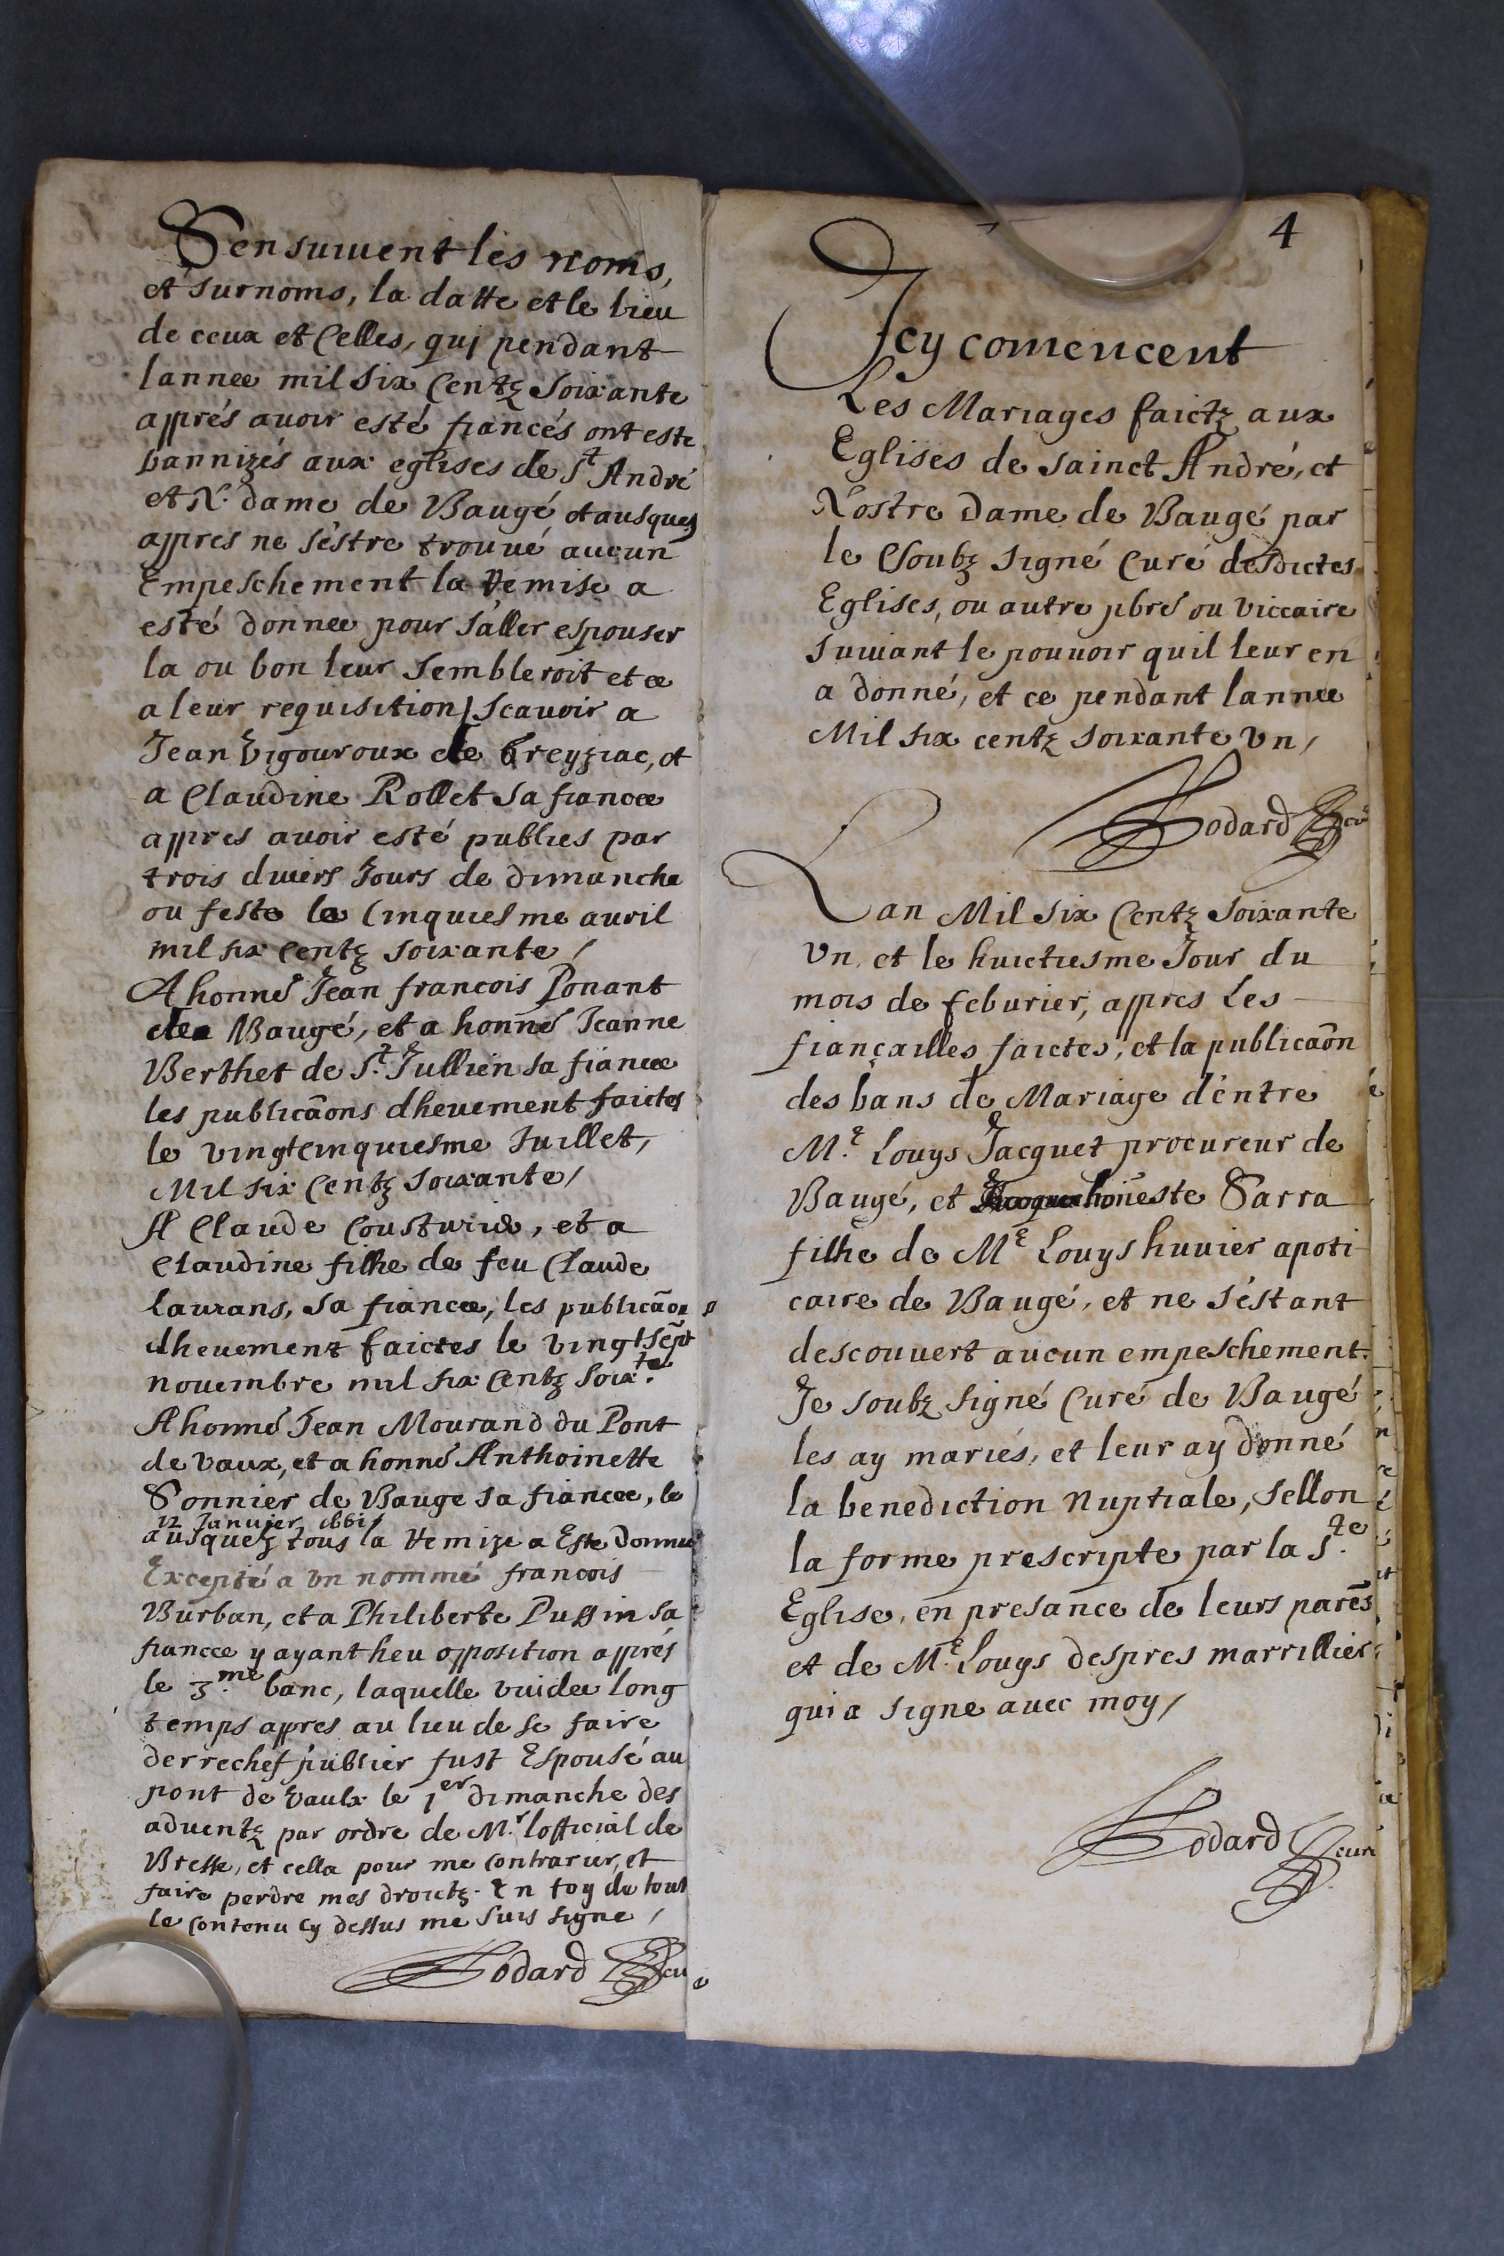 Sensuiuent les noms,
et surnoms, la datte et le lieu
de ceux et Celles, quj pendant
lannee mil six Centz soixante
apprés auoir esté fiancés ont este
bannizés aux eglises de St André
et N. dame de Baugé et ausquez
appres ne sestre trouué aucun
Empeschement la Remise a
esté donnee pour saller espouser
la ou bon leur sembleroit et ce
a leur requisition / Scauoir a
Jean Vigouroux de Treyziac, et
a Claudine Rollet sa fiancee
appres auoir esté publies par
trois diuers Jours de dimanche
ou feste le Cinquiesme auril
mil six Centz soixante /
A honné Jean francois Ponant
de Baugé, et a honné Jeanne
Berthet de St. Jullien sa fiancee
les publicãons dheuement faictes
le vingtcinquiesme Juillet,
Mil six Centz soixante /
A Claude Cousturier, et a
Claudine filhe de feu Claude
Laurans, sa fiancee, les publicãon
dheuement faictes le vingtsept
nouembre mil six Centz soix.te
A honné Jean Mourand du Pont
de vaux, et a honné Anthoinette
Sonnier de Bauge sa fiancee, le
12 Januier 1661 /
ausquez tous la Remize a Este donnee
Excepté a vn nommé francois
Burban, et a Philiberte Pussin sa
fiancee y ayant heu opposition apprés
le 3.me banc, laquelle vuidee long
temps appres au lieu de se faire
derrechef publier fust Espousé au
pont de vaulx le 1er dimanche des
aduentz par ordre de M.r lofficial de
Bresse, et cella pour me contrarier, et
faire perdre mes droictz. En foy de tout
le contenu Cy dessus me suis signe /
Godard cu
4
Jcy comencent
Les Mariages faictz aux
Eglises de sainct André, et
Nostre Dame de Baugé par
le soubz signé Curé desdictes
Eglises, ou autre pbrē ou viccaire
suiuant le pouuoir quil leur en
a donné, et ce pendant lannee
Mil six centz soixante vn /
Godard cur
Lan Mil six Centz soixante
vn, et le huictiesme Jour du
mois de feburier, appres les
fiançailles faictes, et la publicãon
des bans de Mariage dentre
M.e Louys Jacquet procureur de
Baugé, et honeste Sarra
filhe de Me Louys huuier apoti
caire de Baugé, et ne sestant
descouuert aucun empeschement.
Je soubz signé Curé de Baugé
les ay mariés, et leur ay donné
la benediction nuptiale, sellon
la forme prescripte par la S.te
Eglise, en presance de leurs parēs
et de M.e Louys despres marrillier
qui a signe auec moy /
Godard curé